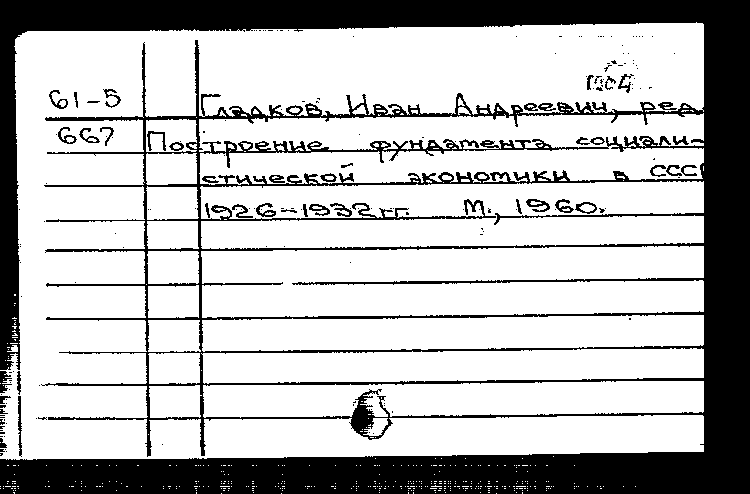 1904
61-5 Гладков, Иван Андреевич, ред.
667 Построение фундамента социали-
стической экономики в СССР
1926-1932 гг. М., 1960.